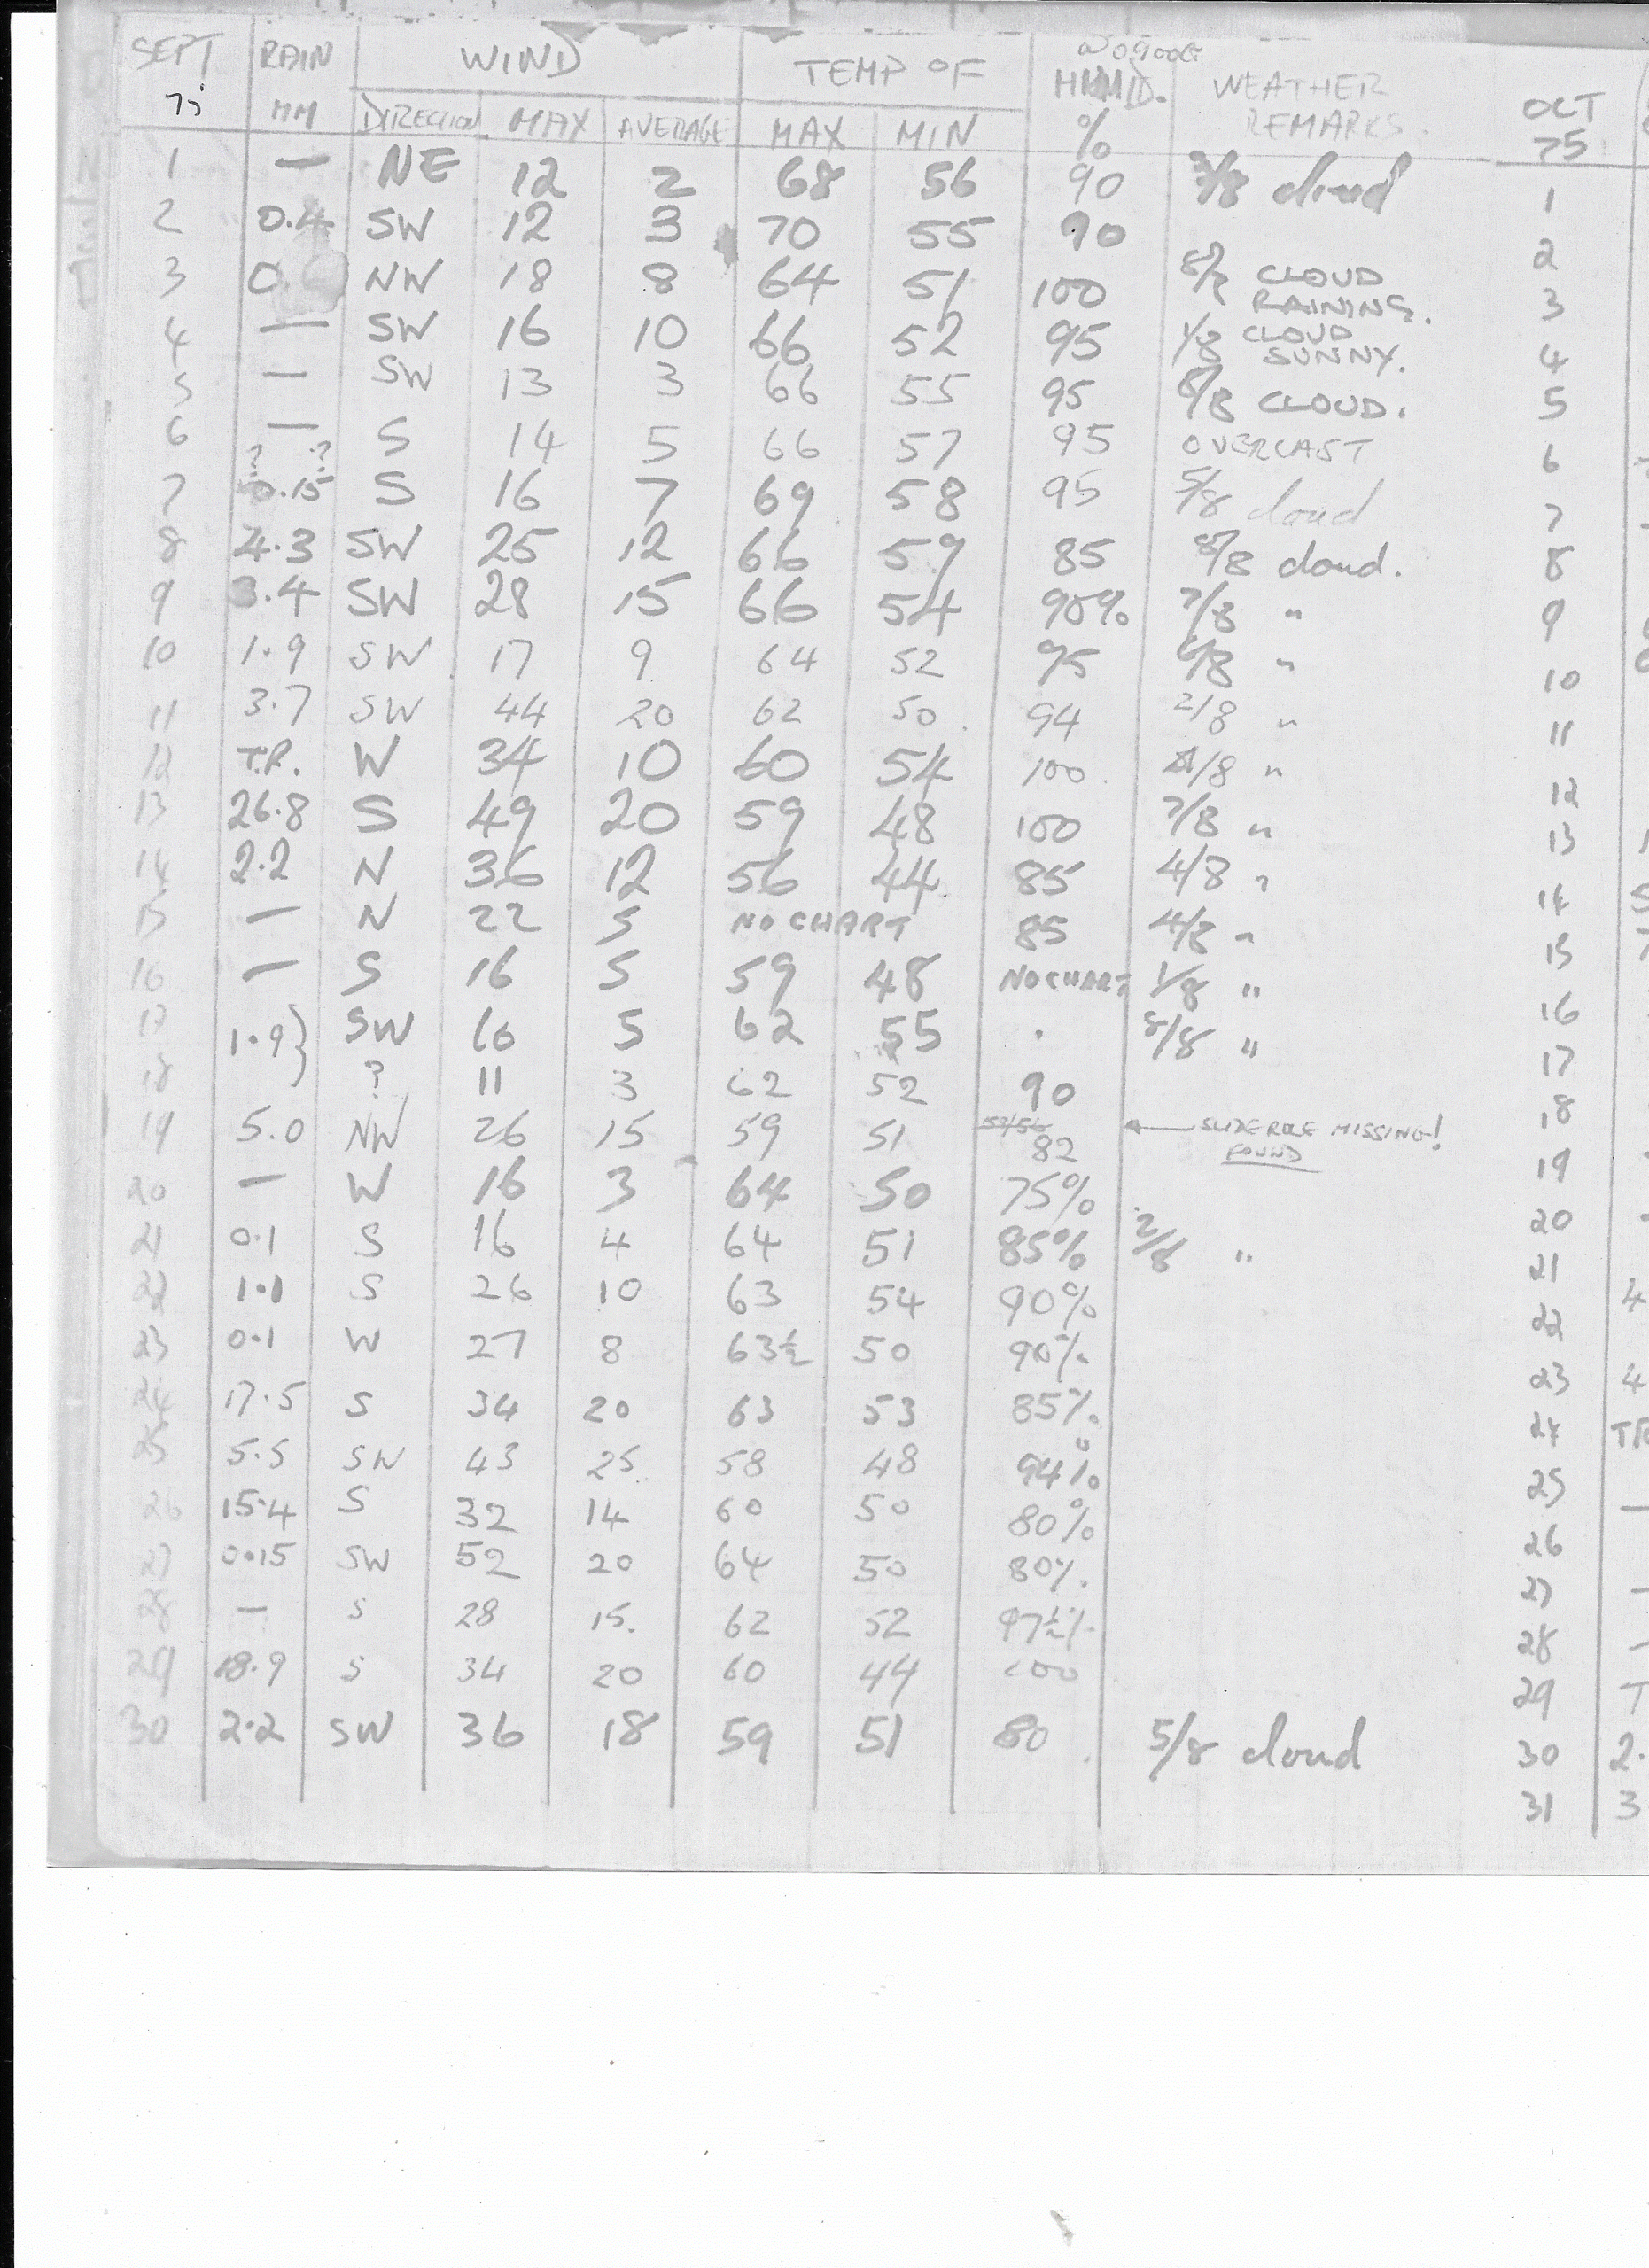 SEPT RAIN WIND TEMP OF HUMID. WEATHER OCT
75 MM DIRECTION MAX AVERAGE MAX MIN % REMARKS. 75
1 — NE 12 2 68 56 90 cloud 1
2 0.4 SW 12 3 70 55 90 2
3 0. NW 18 8 64 51 100 CLOUD RAINING. 3
4 — SW 16 10 66 52 95 1/8 CLOUD SUNNY. 4
5 — SW 13 3 66 55 95 8/8 CLOUD. 5
6 — S 14 5 66 57 95 OVERCAST 6
? ?
7 0.15 S 16 7 69 58 95 5/8 cloud 7
8 4.3 SW 25 12 66 59 85 8/8 cloud. 8
9 3.4 SW 28 15 66 54 90% 7/8 " 9
10 1.9 SW 17 9 64 52 95 /8 " 10
11 3.7 SW 44 20 62 50 94 2/8 " 11
12 T.R. W 34 10 60 54 100 /8 " 12
13 26.8 S 49 20 59 48 100 7/8 " 13
14 2.2 N 36 12 56 44 85 4/8 " 14
15 — N 22 5 NO CHART 85 4/8 " 15
16 — S 16 5 59 48 NO CHART 1/8 " 16
17 1.9} SW 16 5 62 55 . 8/8 " 17
18 ? 11 3 62 52 90 18
19 5.0 NW 26 15 59 51 82 ← SLIDE RULE MISSING! 19
FOUND
20 — W 16 3 64 50 75% 20
21 0.1 S 16 4 64 51 85% 2/8 " 21
22 1.1 S 26 10 63 54 90% 22 4
23 0.1 W 27 8 63½ 50 90% 23 4
24 17.5 S 34 20 63 53 85% 24 TR
25 5.5 SW 43 25 58 48 94% 25 —
26 15.4 S 32 14 60 50 80% 26
27 0.15 SW 52 20 64 50 80% 27 —
28 — S 28 15. 62 52 97½% 28 —
29 18.9 S 34 20 60 44 100 29 T
30 2.2 SW 36 18 59 51 80 5/8 cloud 30 2.
31 3